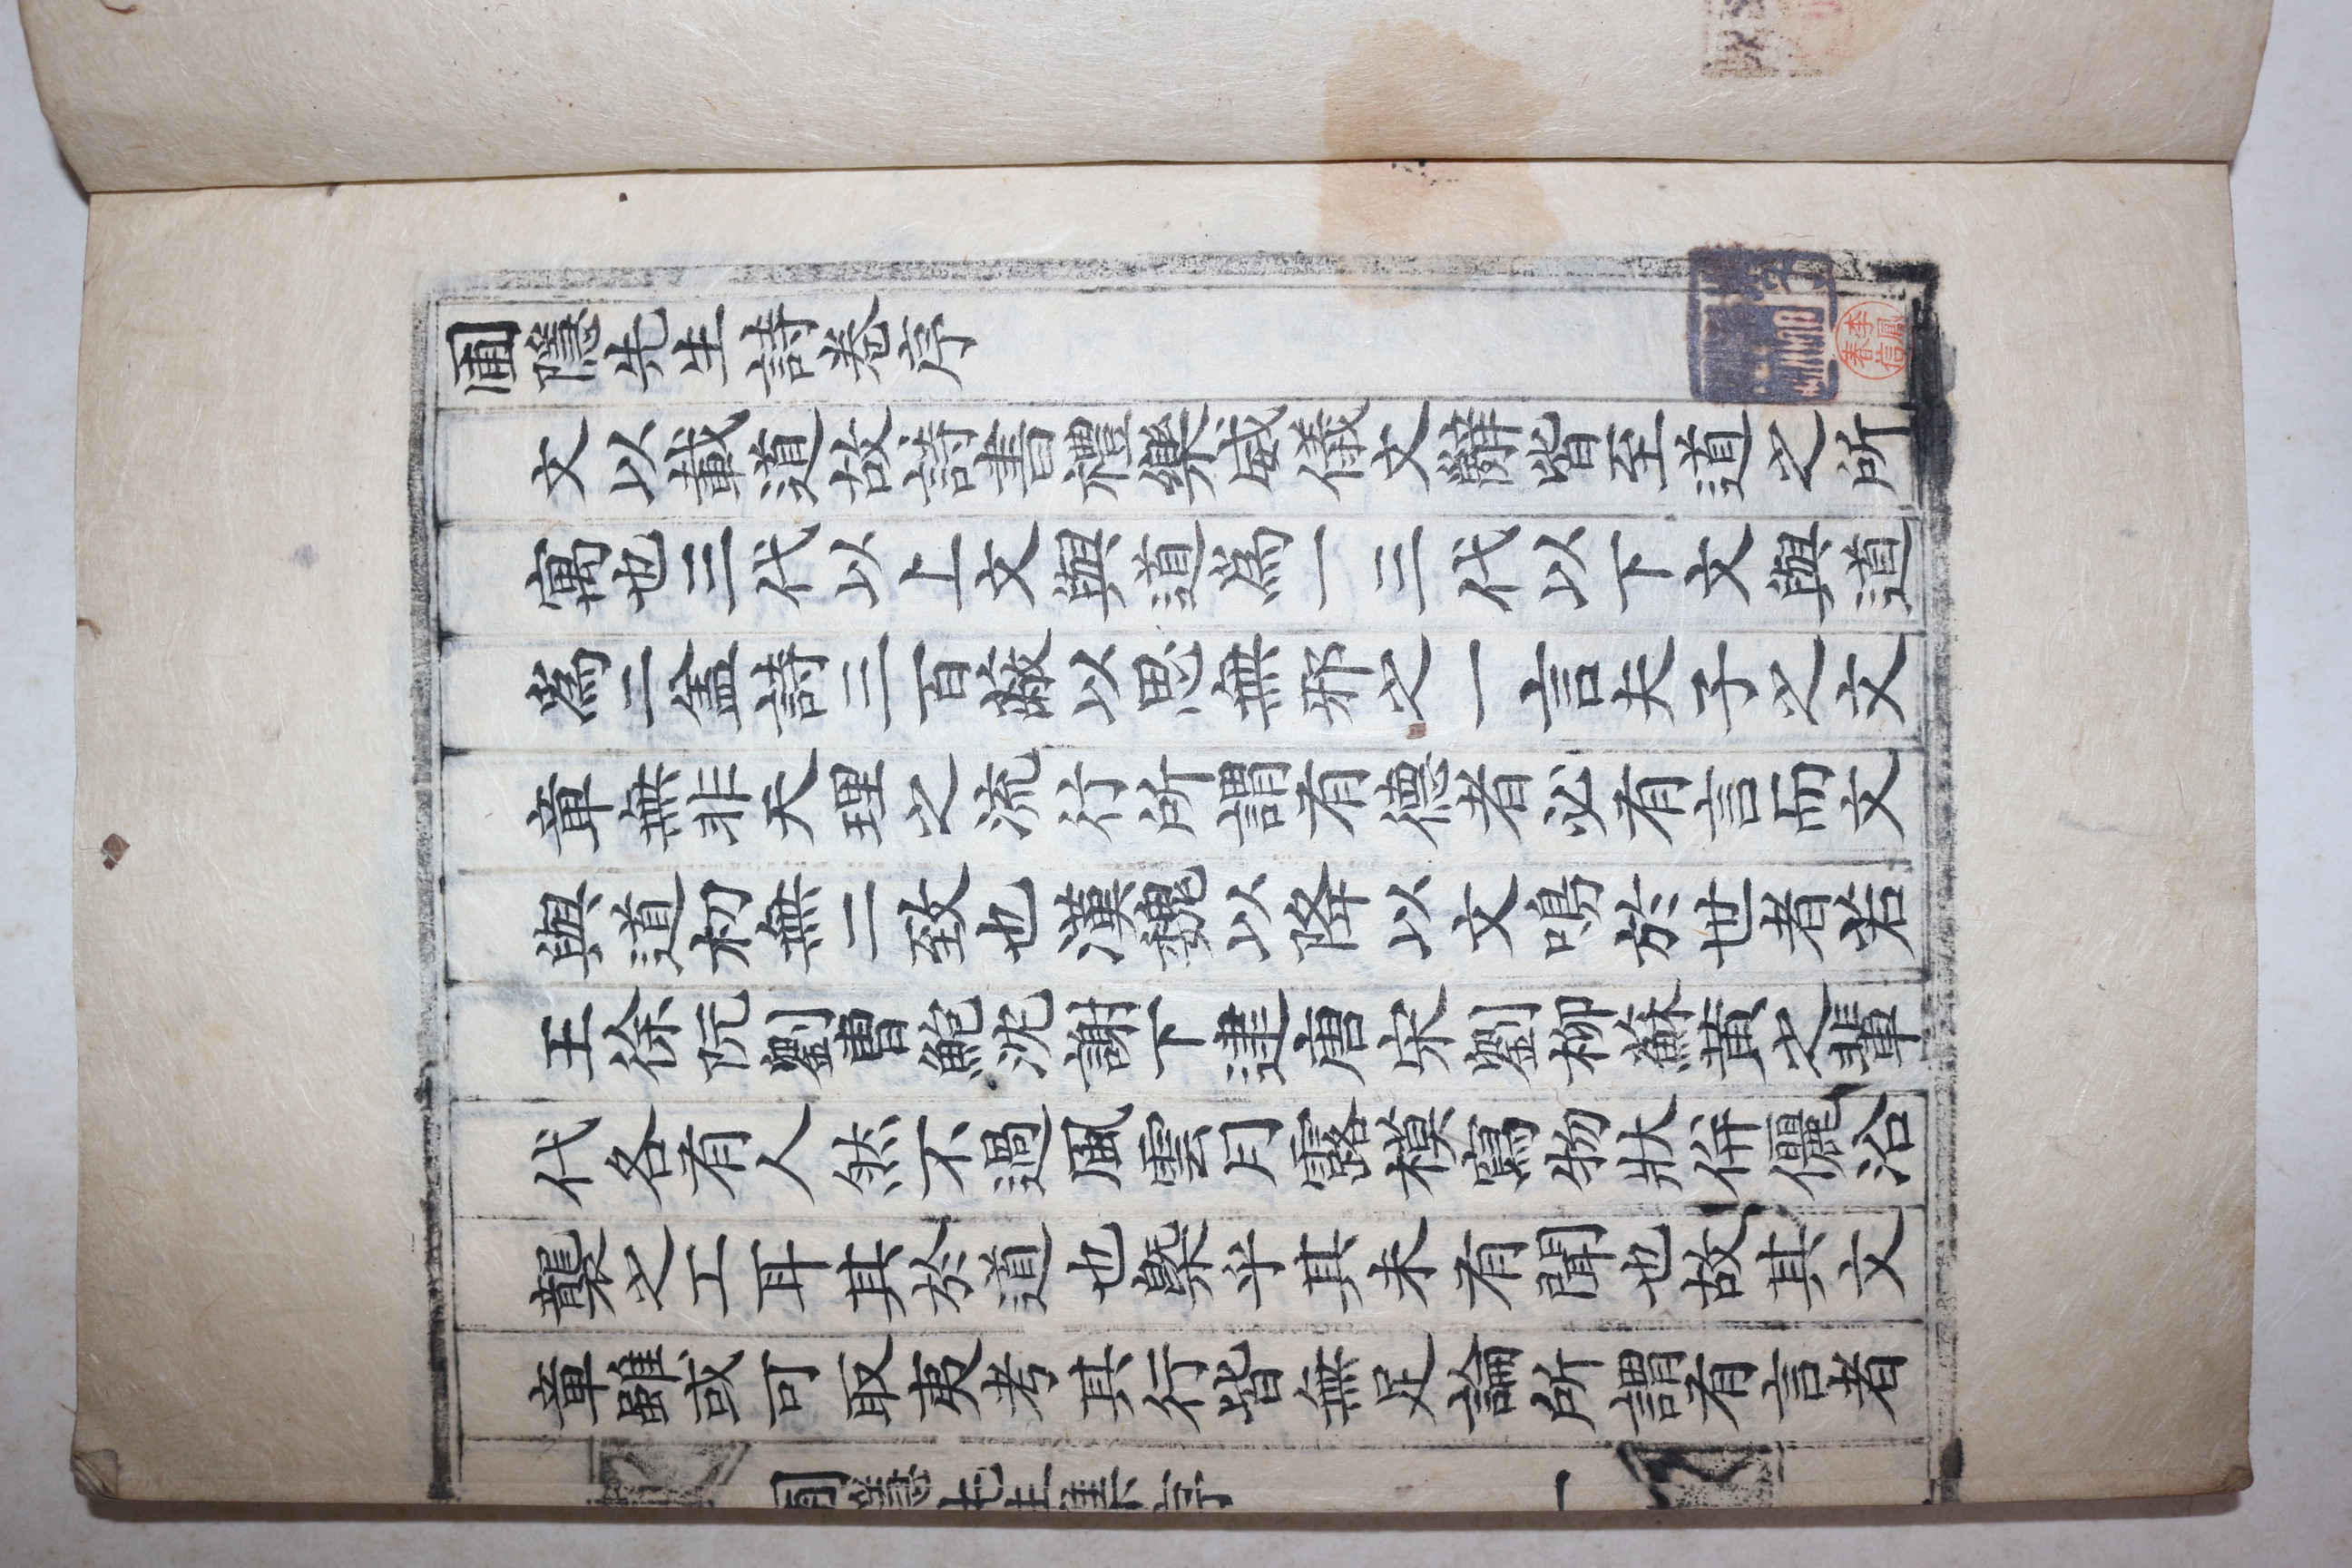 圃隱先生詩卷序
文以載道故詩書禮樂威儀文辭皆至道之所
寓也三代以上文與道爲一三代以下文與道
爲二盖詩三百蔽以思無邪之一言夫子之文
章無非天理之流行所謂有德者必有言而文
與道初無二致也漢魏以降以文鳴於世者若
王徐阮劉曹鮑沈謝下逮唐宋劉柳蘇黃之輩
代各有人然不過風雲月露模寫物狀倂儷沿
襲之工耳其於道也槩乎其未有聞也故其文
章雖或可取夷考其行皆無足論所謂有言者
圃隱先生集序 一